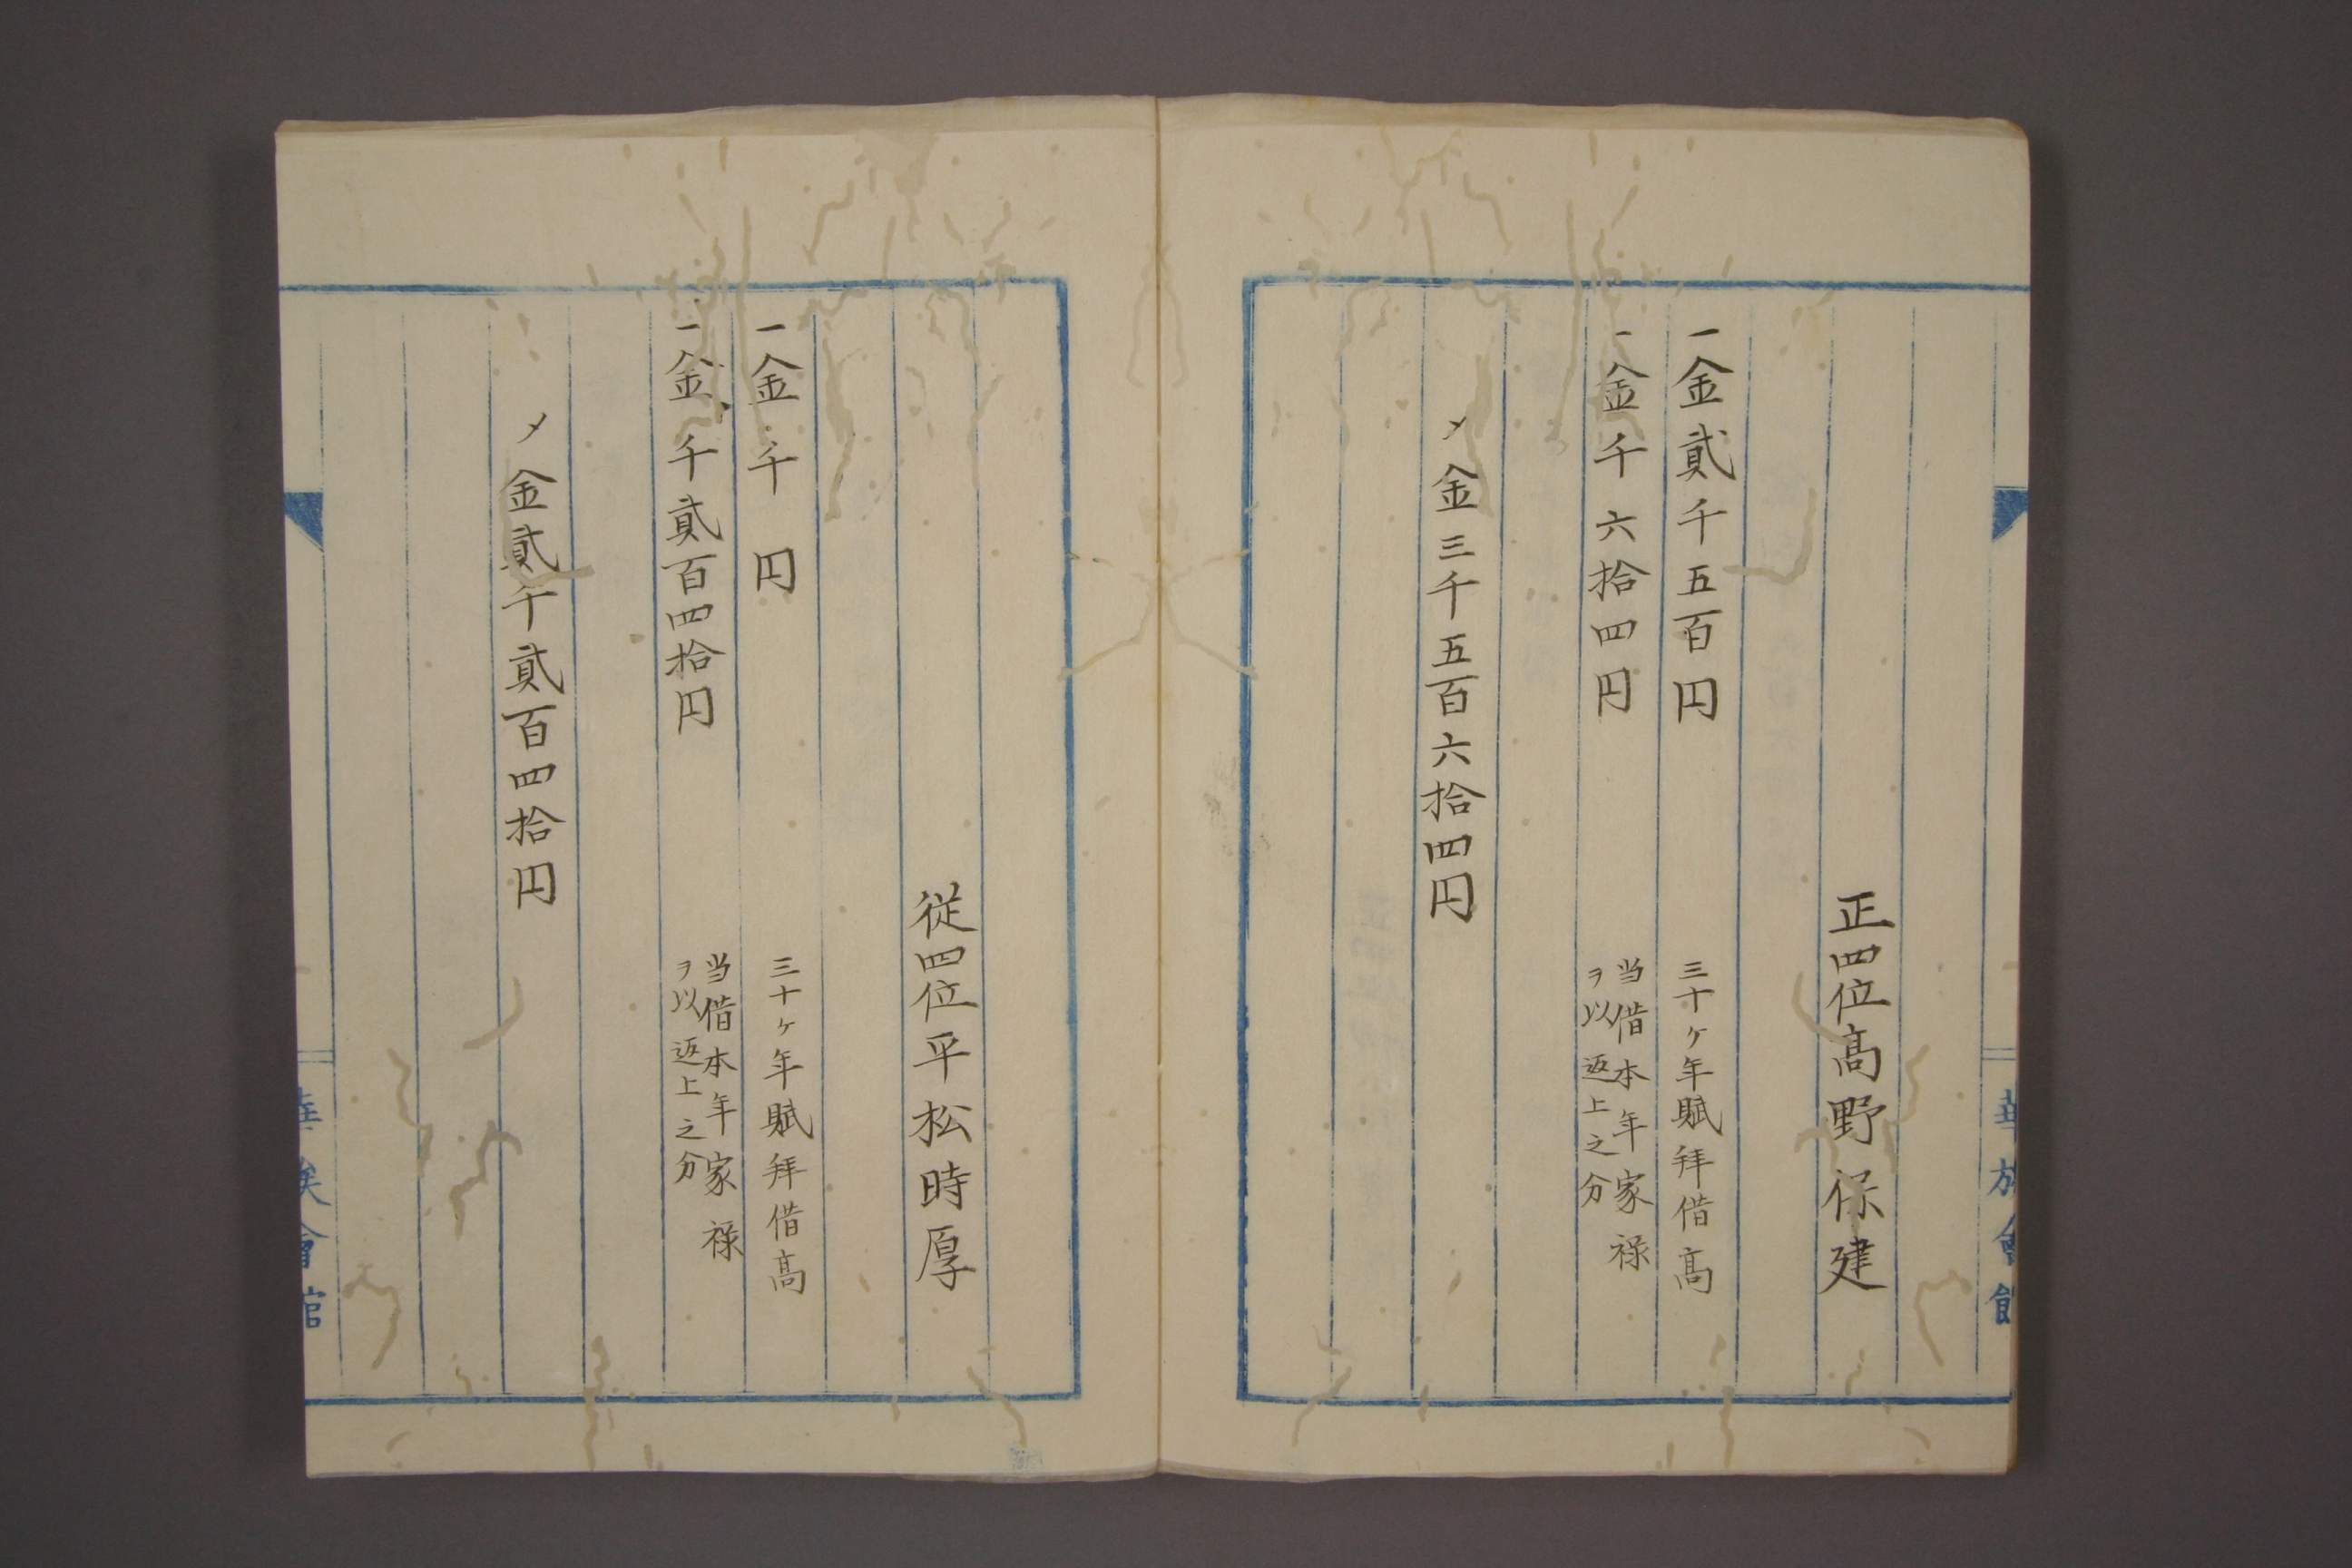 華族會館
正四位高野保建
一金貳千五百円
三十ケ年賦拜借高
一金千六拾四円
当借本年家禄
ヲ以返上之分
〆金三千五百六拾四円
従四位平松時厚
一金千円
三十ケ年賦拜借高
一金千貳百四拾円
当借本年家禄
ヲ以返上之分
〆金貳千貳百四拾円
華族會館